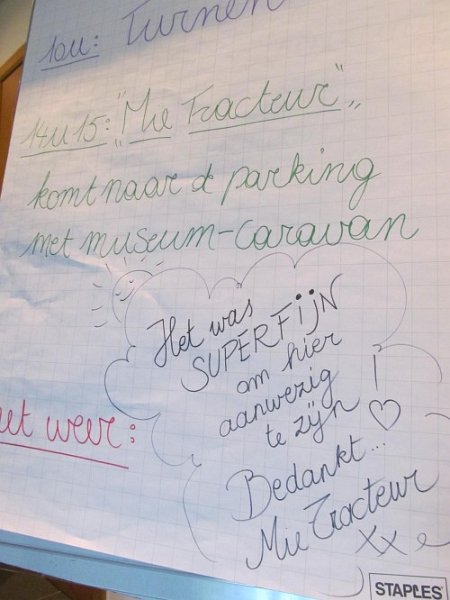 10u: Turnen
14u15: "Mie Tracteur"
komt naar de parking
met museum-caravan
Het was
SUPERFIJN
om hier
aanwezig
te zijn!
Bedankt...
Mie Tracteur
xx
weer:
STAPLES